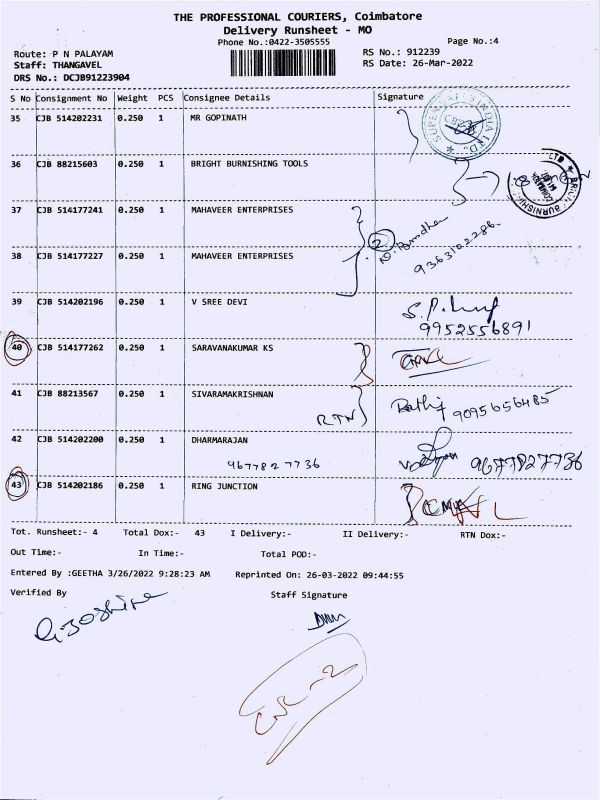 THE PROFESSIONAL COURIERS, Coimbatore
Delivery Runsheet - MO
Phone No.:0422-3505555
Page No.:4
Route: P N PALAYAM
RS No.: 912239
Staff: THANGAVEL
RS Date: 26-Mar-2022
DRS No.: DCJB91223904
S No Consignment No Weight PCS Consignee Details Signature
35 CJB 514202231 0.250 1 MR GOPINATH
36 CJB 88215603 0.250 1 BRIGHT BURNISHING TOOLS
37 CJB 514177241 0.250 1 MAHAVEER ENTERPRISES
2
9363102286
38 CJB 514177227 0.250 1 MAHAVEER ENTERPRISES
39 CJB 514202196 0.250 1 V SREE DEVI
9952556891
40 CJB 514177262 0.250 1 SARAVANAKUMAR KS
41 CJB 88213567 0.250 1 SIVARAMAKRISHNAN
RTN 9095656485
42 CJB 514202200 0.250 1 DHARMARAJAN
9677827736 9677827736
43 CJB 514202186 0.250 1 RING JUNCTION
Tot. Runsheet:- 4 Total Dox:- 43 I Delivery:- II Delivery:- RTN Dox:-
Out Time:- In Time:- Total POD:-
Entered By :GEETHA 3/26/2022 9:28:23 AM Reprinted On: 26-03-2022 09:44:55
Verified By Staff Signature